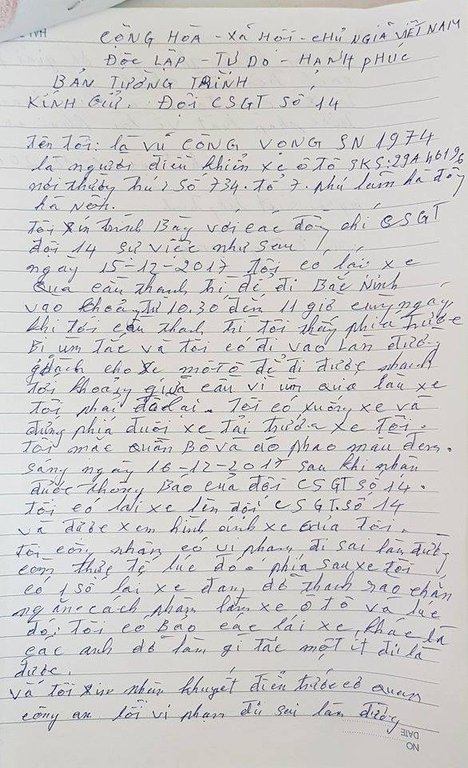 CỘNG HÒA - XÃ HỘI - CHỦ NGHĨA VIỆT NAM
ĐỘC LẬP - TỰ DO - HẠNH PHÚC
BẢN TƯỜNG TRÌNH
KÍNH GỬI. ĐỘI CSGT SỐ 14
Tên tôi: là VŨ CÔNG VONG SN 1974
là người điều khiển xe ô tô SKS: 29A 46196
nơi thường trú: Số 734. tổ 7. phú lãm hà đông
hà Nội.
Tôi xin trình Bày với các đồng chí CSGT
đội 14 sự việc như sau
ngày 15-12-2017 tôi có lái xe
qua cầu thanh trì để đi Bắc Ninh
vào khoảng từ 10.30 đến 11 giờ cùng ngày
khi tới cầu thanh trì tôi thấy phía trước
Bị ùn tắc và tôi có đi vào Lan đường
dành cho xe môtô để đi được nhanh
tới khoảng giữa cầu vì ùn quá lâu xe
tôi phải đỗ lại. Tôi có xuống xe và
đứng phía đuôi xe tải trước xe tôi.
Tôi mặc quần Bò và áo phao màu đen.
sáng ngày 16-12-2017 sau khi nhận
được thông Báo của đội CSGT Số 14.
Tôi có lái xe lên đội CSGT Số 14
và được xem hình ảnh xe của tôi.
Tôi công nhận có vi phạm đi sai làn đường
còn thực tế lúc đó ở phía sau xe tôi
có 1 số lái xe đang dỡ thanh rào chắn
ngăn cách phần làn xe ô tô và lúc
đó, tôi có Bảo các lái xe khác là
các anh dỡ làm gì tắc một ít đi là
được.
và tôi xin nhận khuyết điểm trước cơ quan
công an lỗi vi phạm đi sai làn đường
NO
DATE